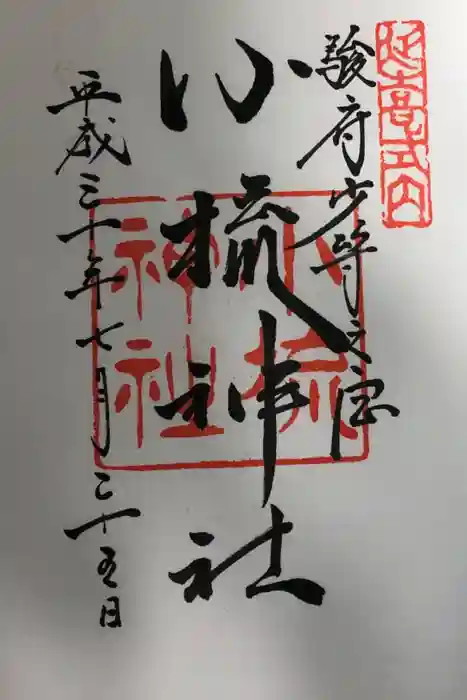 延喜式内
駿府少将之宮
小梳神社
小梳
神社
平成三十年七月二十五日